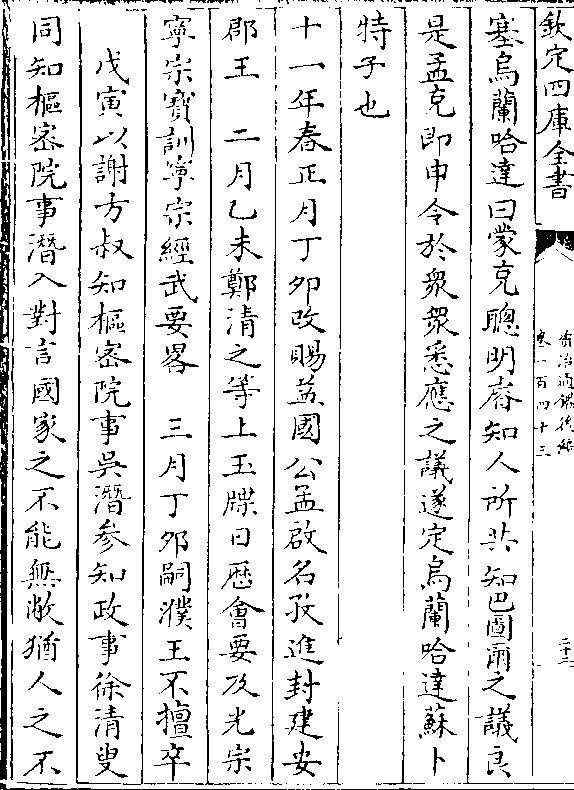 欽定四庫全書
資治通鑑後編
卷一百四十三
二十三
塞烏蘭哈達曰蒙克聰明睿知人所共知巴圖爾之議良
是孟克即申令於衆衆悉應之議遂定烏蘭哈達蘇卜
特子也
十一年春正月丁夘改賜益國公孟啟名孜進封建安
郡王　二月乙未鄭清之等上玉牒日歷會要及光宗
寧宗寶訓寧宗經武要畧　三月丁夘嗣濮王不擅卒
戊寅以謝方叔知樞密院事吳潛參知政事徐清叟
同知樞密院事潛入對言國家之不能無敝猶人之不